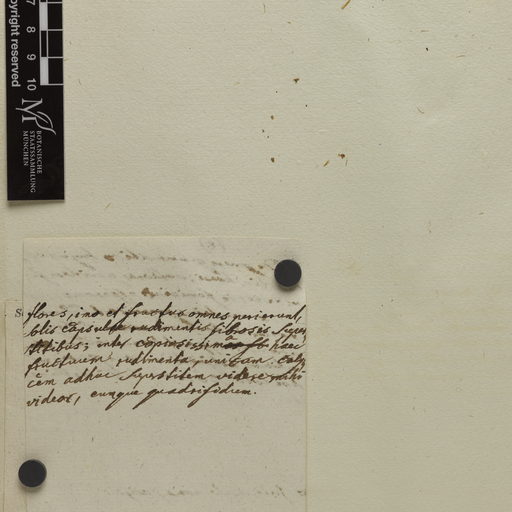 opyright reserved
7 8 9 10
BOTANISCHE
STAATSSAMMLUNG
MÜNCHEN
flores, imo et fructus omnes perierunt,
capsulae rudimentis fibrosis super
stitibus; inter haec
fructuum rudimenta, unicam caly
cem adhuc superstitem videre mihi
videor, eumque quadrifidum.